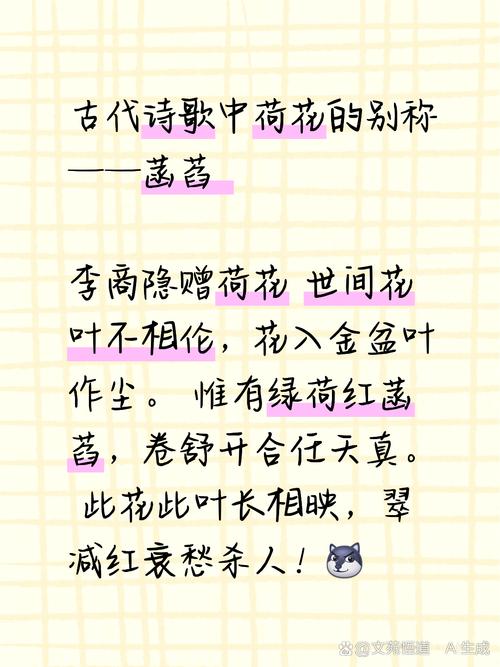 古代诗歌中荷花的别称
——菡萏
李商隐赠荷花 世间花
叶不相伦，花入金盆叶
作尘。 惟有绿荷红菡
萏，卷舒开合任天真。
此花此叶长相映，翠
减红衰愁杀人！
@文苑悟道 · AI 生成